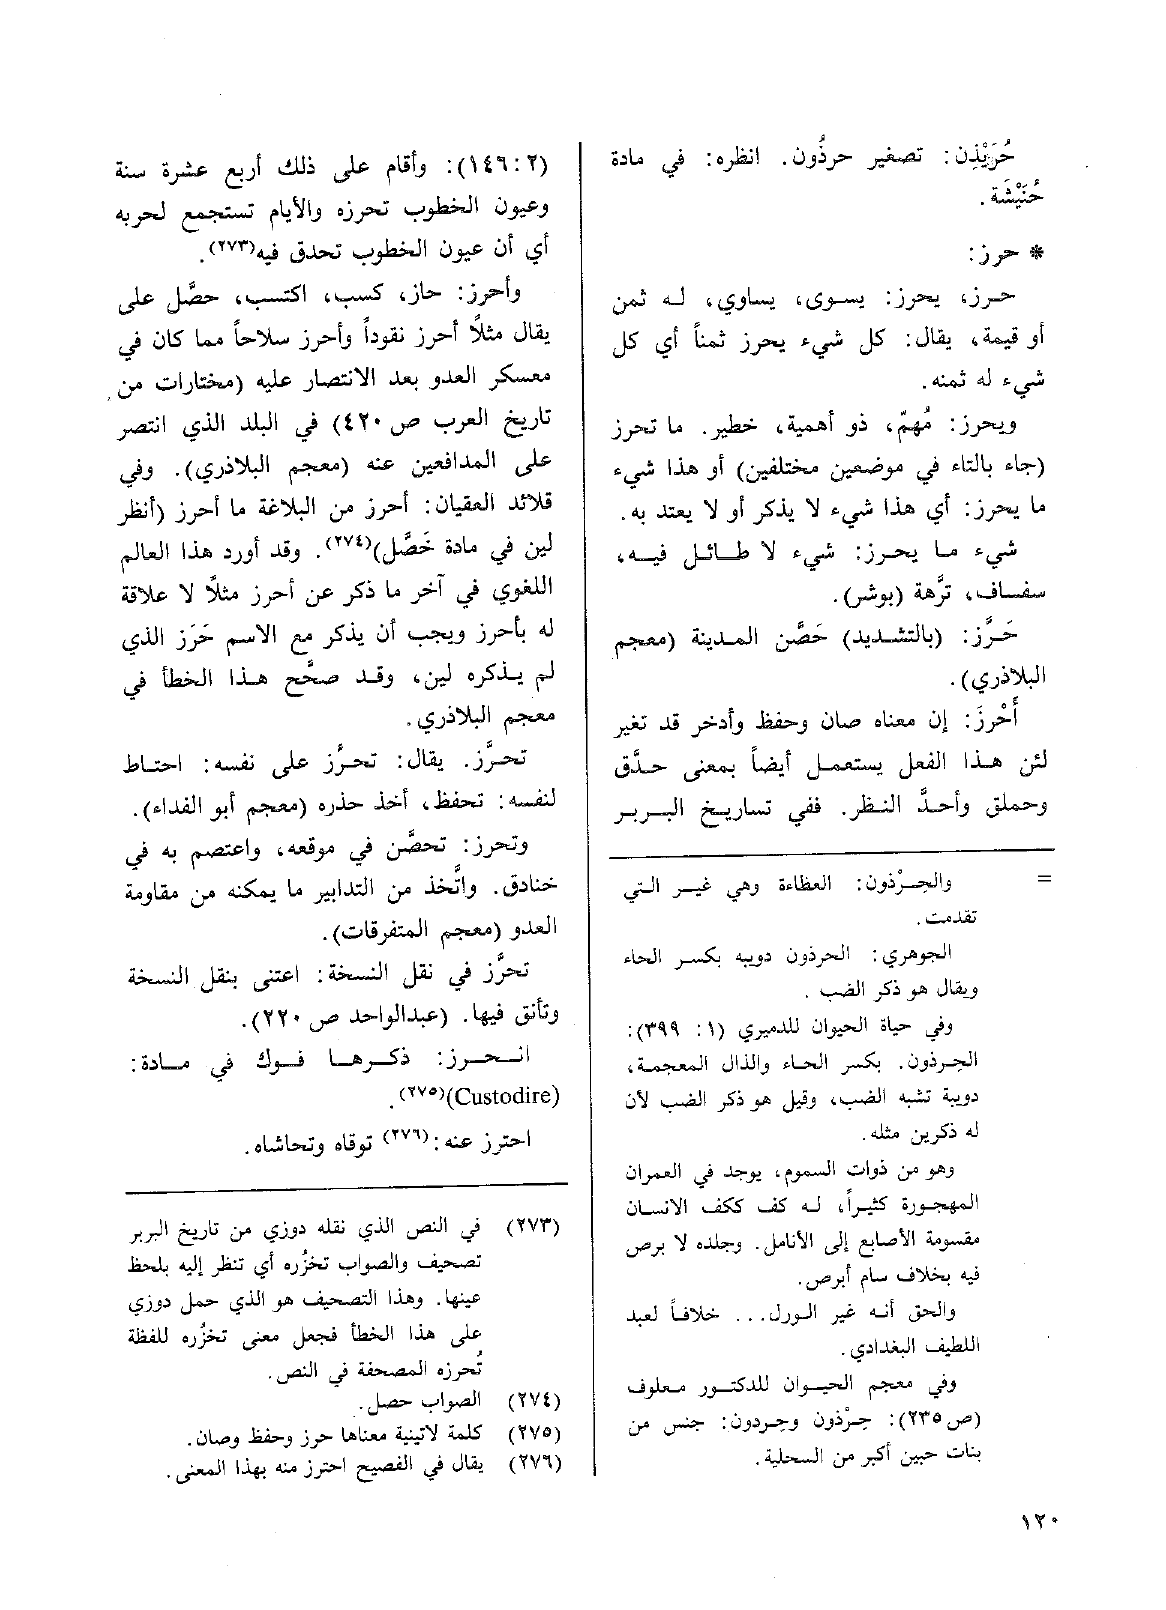 حُرَيْذِن: تصغير حرذُون. انظره: في مادة
حُنَيْشَة.
* حرز:
حرز، يحرز: يسوى، يساوي، له ثمن
أو قيمة، يقال: كل شيء يحرز ثمناً أي كل
شيء له ثمنه.
ويحرز: مُهمّ، ذو أهمية، خطير. ما تحرز
(جاء بالتاء في موضعين مختلفين) أو هذا شيء
ما يحرز: أي هذا شيء لا يذكر أو لا يعتد به.
شيء ما يحرز: شيء لا طائل فيه،
سفساف، ترَّهة (بوشر).
حَرَّز: (بالتشديد) حَصَّن المدينة (معجم
البلاذري).
أَحْرزَ: إن معناه صان وحفظ وأدخر قد تغير
لئن هذا الفعل يستعمل أيضاً بمعنى حدَّق
وحملق وأحدَّ النظر. ففي تساريخ البربر
= والحِرْذون: العظاءة وهي غير التي
تقدمت.
الجوهري: الحرذون دويبه بكسر الحاء
ويقال هو ذكر الضب.
وفي حياة الحيوان للدميري (١: ٣٩٩):
الحِرذون. بكسر الحاء والذال المعجمة،
دويبة تشبه الضب، وقيل هو ذكر الضب لأن
له ذكرين مثله.
وهو من ذوات السموم، يوجد في العمران
المهجورة كثيراً، له كف ككف الانسان
مقسومة الأصابع إلى الأنامل. وجلده لا برص
فيه بخلاف سام أبرص.
والحق أنه غير الورل... خلافاً لعبد
اللطيف البغدادي.
وفي معجم الحيوان للدكتور معلوف
(ص٢٣٥): حِرْذون وحِردون: جنس من
بنات حبين أكبر من السحلية.
(١٤٦:٢): وأقام على ذلك أربع عشرة سنة
وعيون الخطوب تحرزه والأيام تستجمع لحربه
أي أن عيون الخطوب تحدق فيه(٢٧٣).
وأحرز: حاز، كسب، اكتسب، حصَّل على
يقال مثلاً أحرز نقوداً وأحرز سلاحاً مما كان في
معسكر العدو بعد الانتصار عليه (مختارات من
تاريخ العرب ص٤٢٠) في البلد الذي انتصر
على المدافعين عنه (معجم البلاذري). وفي
قلائد العقيان: أحرز من البلاغة ما أحرز (أنظر
لين في مادة خَصَّل)(٢٧٤). وقد أورد هذا العالم
اللغوي في آخر ما ذكر عن أحرز مثلاً لا علاقة
له بأحرز ويجب أن يذكر مع الاسم حَرَز الذي
لم يذكره لين، وقد صحَّح هذا الخطأ في
معجم البلاذري.
تحرَّز. يقال: تحرَّز على نفسه: احتاط
لنفسه: تحفظ، أخذ حذره (معجم أبو الفداء).
وتحرز: تحصَّن في موقعه، واعتصم به في
خنادق. واتَّخذ من التدابير ما يمكنه من مقاومة
العدو (معجم المتفرقات).
تحرَّز في نقل النسخة: اعتنى بنقل النسخة
وتأنق فيها. (عبدالواحد ص٢٢٠).
انحرز: ذكرها فوك في مادة:
(Custodire)(٢٧٥).
احترز عنه:(٢٧٦) توقاه وتحاشاه.
(٢٧٣) في النص الذي نقله دوزي من تاريخ البربر
تصحيف والصواب تخزُره أي تنظر إليه بلحظ
عينها. وهذا التصحيف هو الذي حمل دوزي
على هذا الخطأ فجعل معنى تخزُره للفظة
تُحرزه المصحفة في النص.
(٢٧٤) الصواب حصل.
(٢٧٥) كلمة لاتينية معناها حرز وحفظ وصان.
(٢٧٦) يقال في الفصيح احترز منه بهذا المعنى.
١٢٠